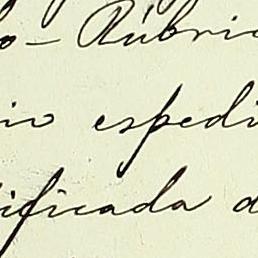 o - Rúbric
io espedi
ificada d